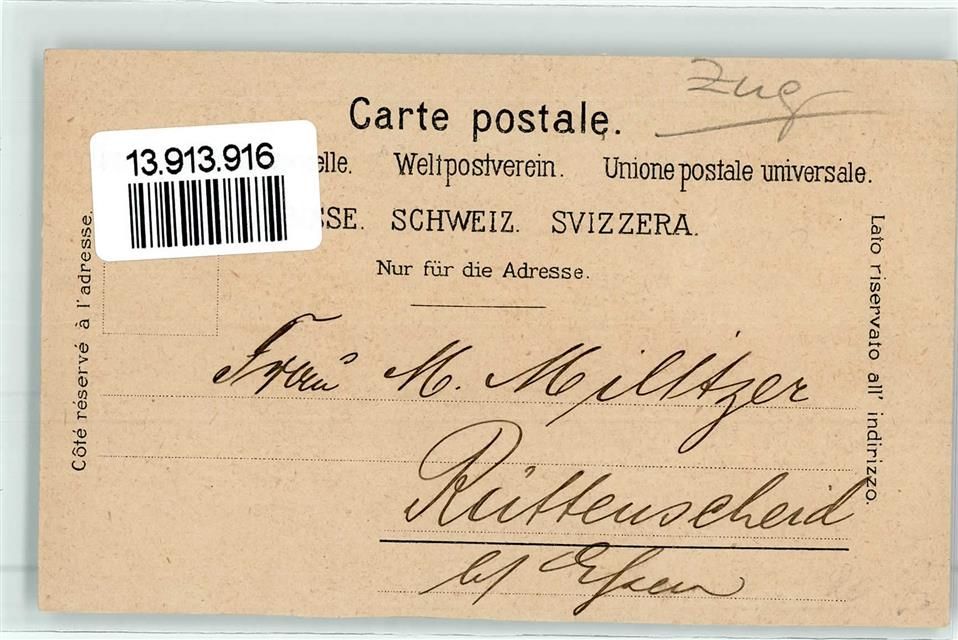 Zug
Carte postale.
elle. Weltpostverein. Unione postale universale.
SSE. SCHWEIZ. SVIZZERA.
Nur für die Adresse.
13.913.916
Côté réservé à l'adresse.
Lato riservato all' indirizzo.
Frau M. Milltzer
Rüttenscheid
b/ Essen